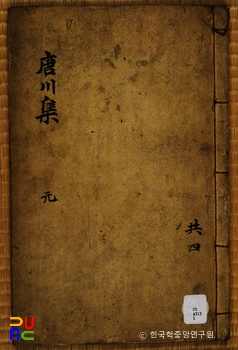 唐川集
元
共四
ⓒ 한국학중앙연구원